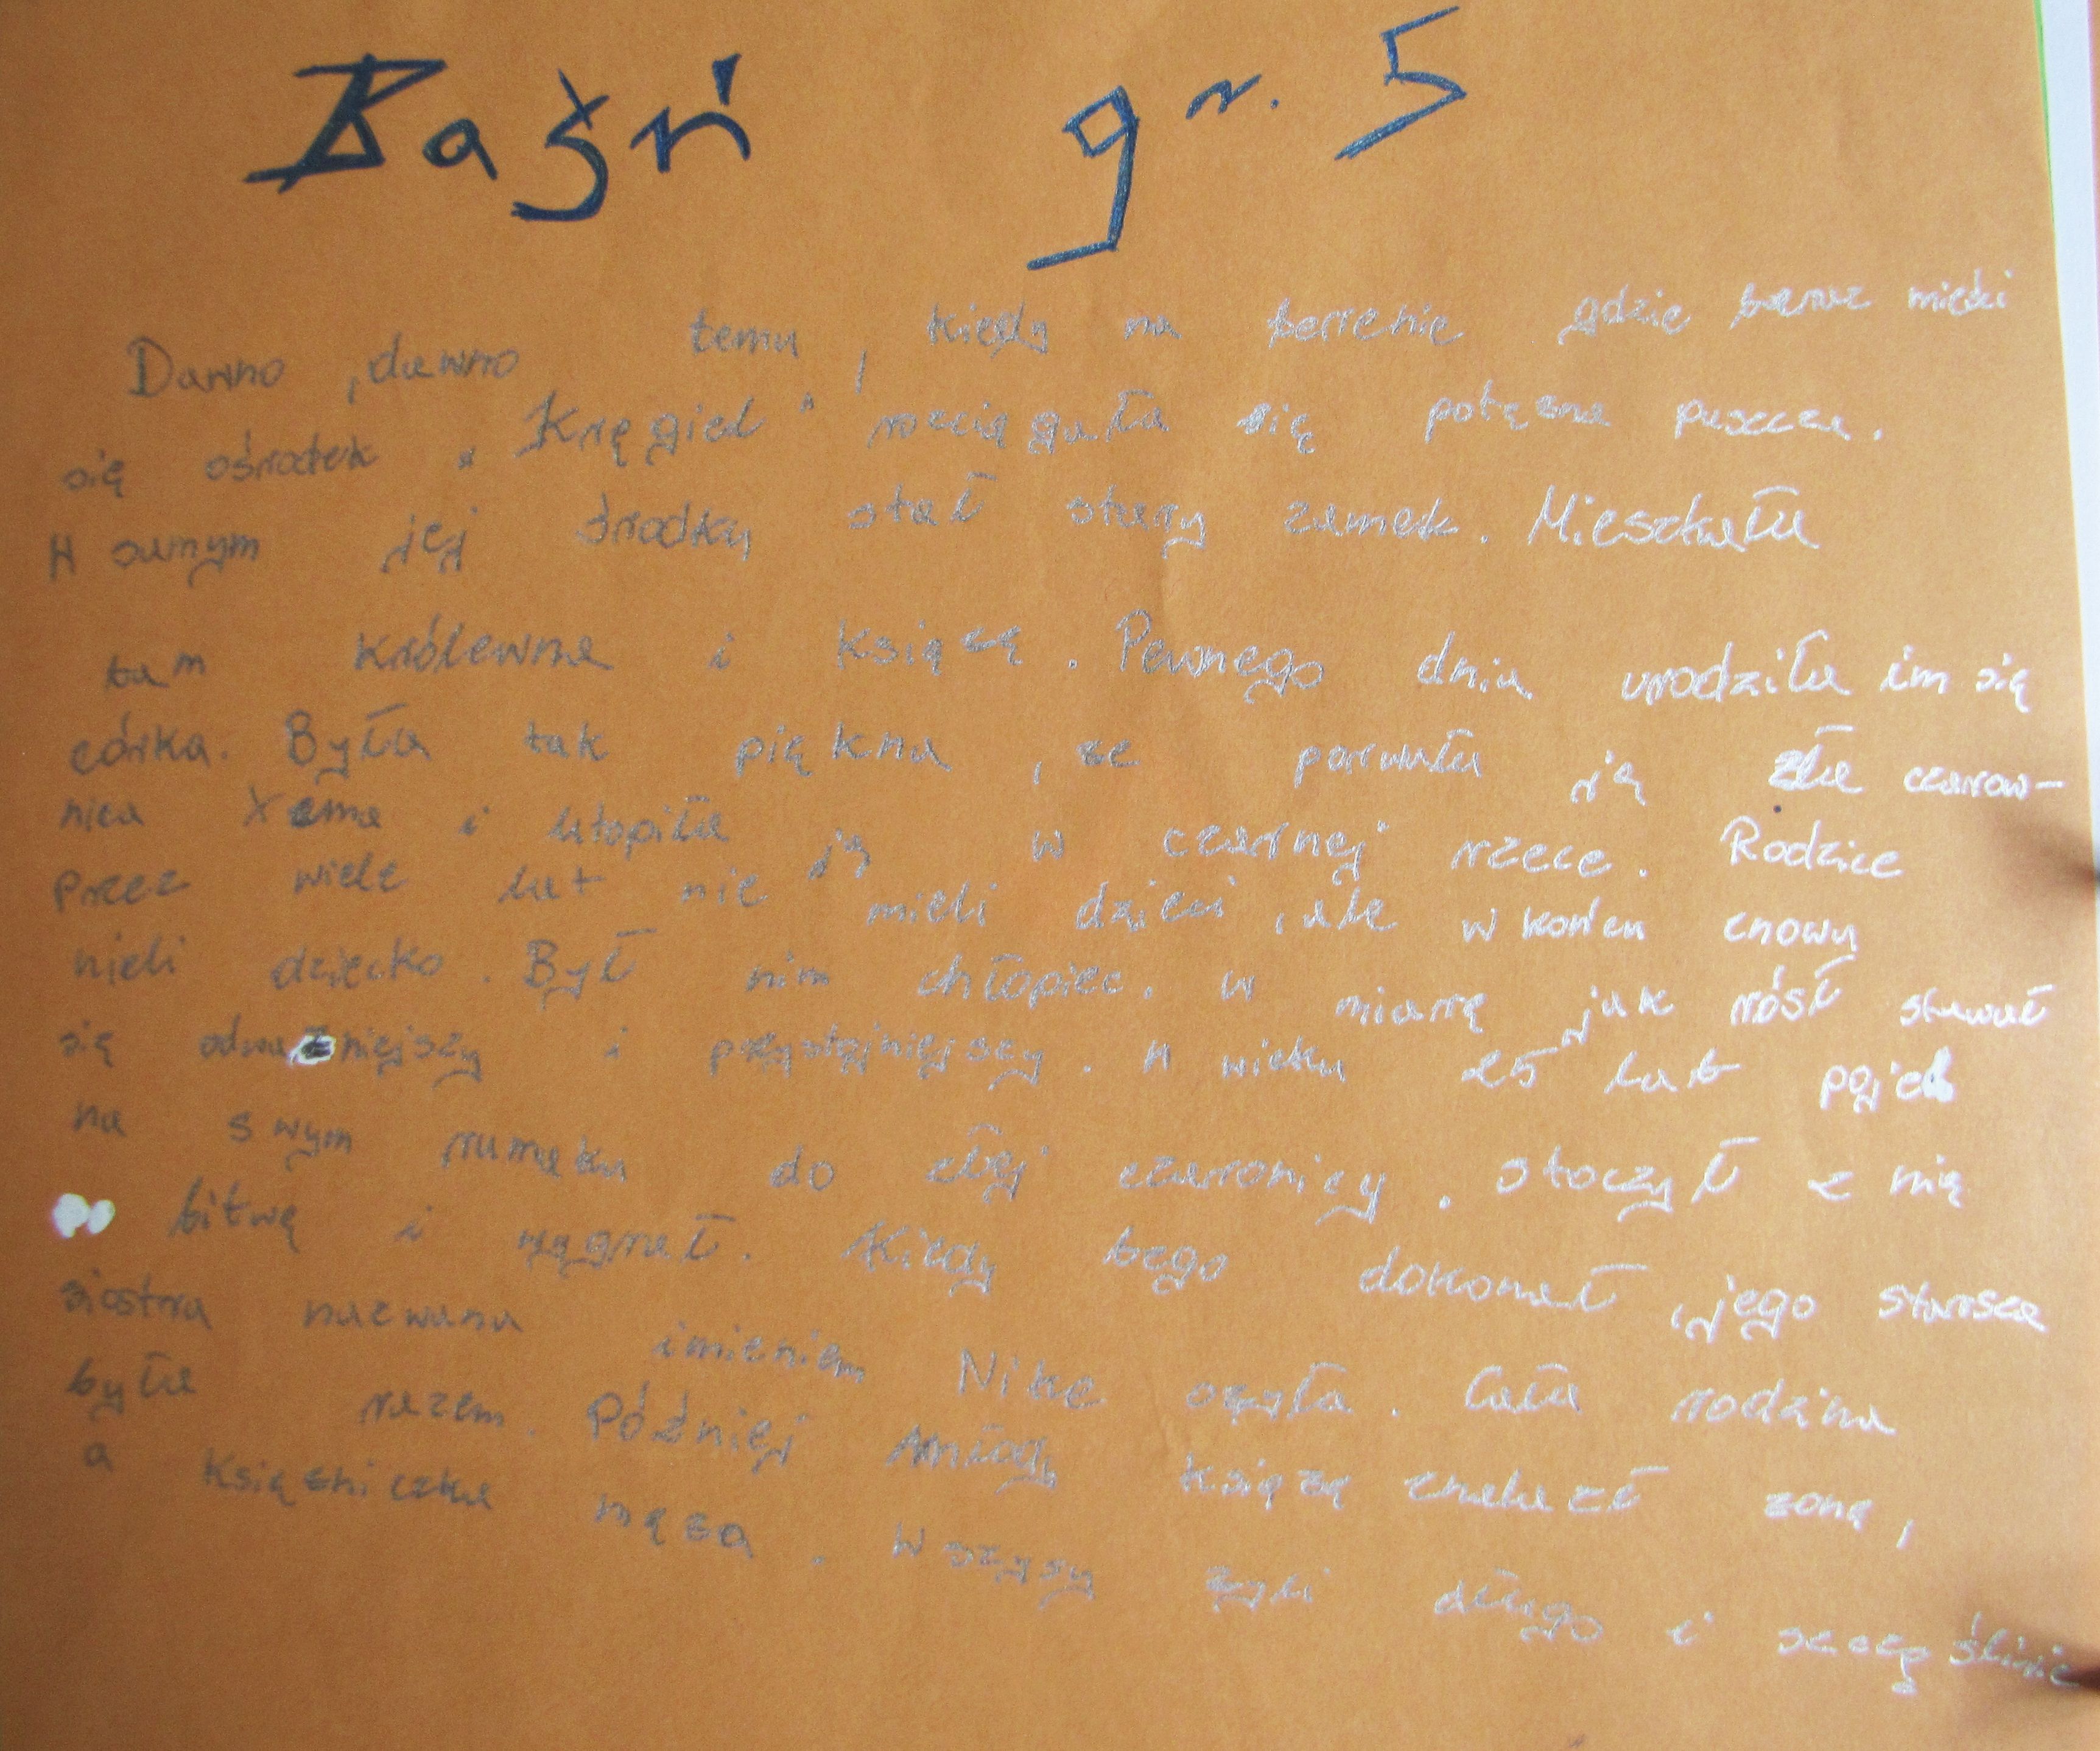 Baśń gr. 5
Dawno, dawno temu, kiedy na terrenie gdzie teraz mieści
się ośrodek "Kręgiel" rozciągała się potężna puszcza.
W samym jej środku stał stary zamek. Mieszkała
tam królewna i książę. Pewnego dnia urodziła im się
córka. Była tak piękna, że porwała ją zła czarow-
nica Xena i utopiła ją w czarnej rzece. Rodzice
przez wiele lat nie mieli dzieci, ale w końcu znowu
mieli dziecko. Był nim chłopiec. W miarę jak rósł stawał
się odważniejszy i przystojniejszy. W wieku 25 lat
na swym rumaku do złej czaronicy. stoczył z nią
bitwę i wygrał. Kiedy tego dokonał, jego starsza
siostra nazwana imieniem Nike ożyła. Cała rodzina
była razem. Później młody książę znalazł żonę,
a księżniczka męża. Wszysy żyli długo i szczęśliwie